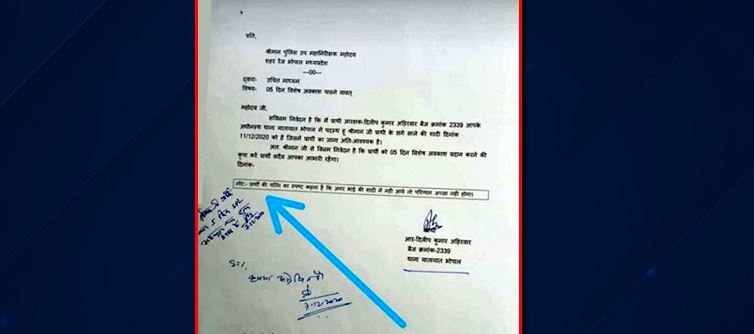 प्रति,
श्रीमान पुलिस उप महानिरीक्षक महोदय
शहर रेंज भोपाल मध्यप्रदेश
---00---
द्वारा- उचित माध्यम
विषय- 05 दिन विशेष अवकाश चाहने वावत्
महोदय जी,
सविनम निवेदन है कि मैं प्रार्थी आरक्षक-दिलीप कुमार अहिरवार बैज क्रमांक 2339 आपके
अधीनस्थ थाना यातायात भोपाल में पदस्थ हू श्रीमान जी प्रार्थी के सगे साले की शादी दिनांक
11/12/2020 को हैं जिसमे प्रार्थी का जाना अति-आवश्यक है।
अतः श्रीमान जी से विनम निवेदन है कि प्रार्थी को 05 दिन विशेष अवकाश प्रदान करने की
कृपा करे प्रार्थी सदैव आपका आभारी रहेगा।
दिनांक-
नोट:- प्रार्थी की पत्नि का स्पष्ट कहना है कि अगर भाई की शादी में नही आये तो परिणाम अच्छा नही होगा।
आर-दिलीप कुमार अहिरवार
बैज क्रमांक-2339
थाना यातायात भोपाल
7/12/2020